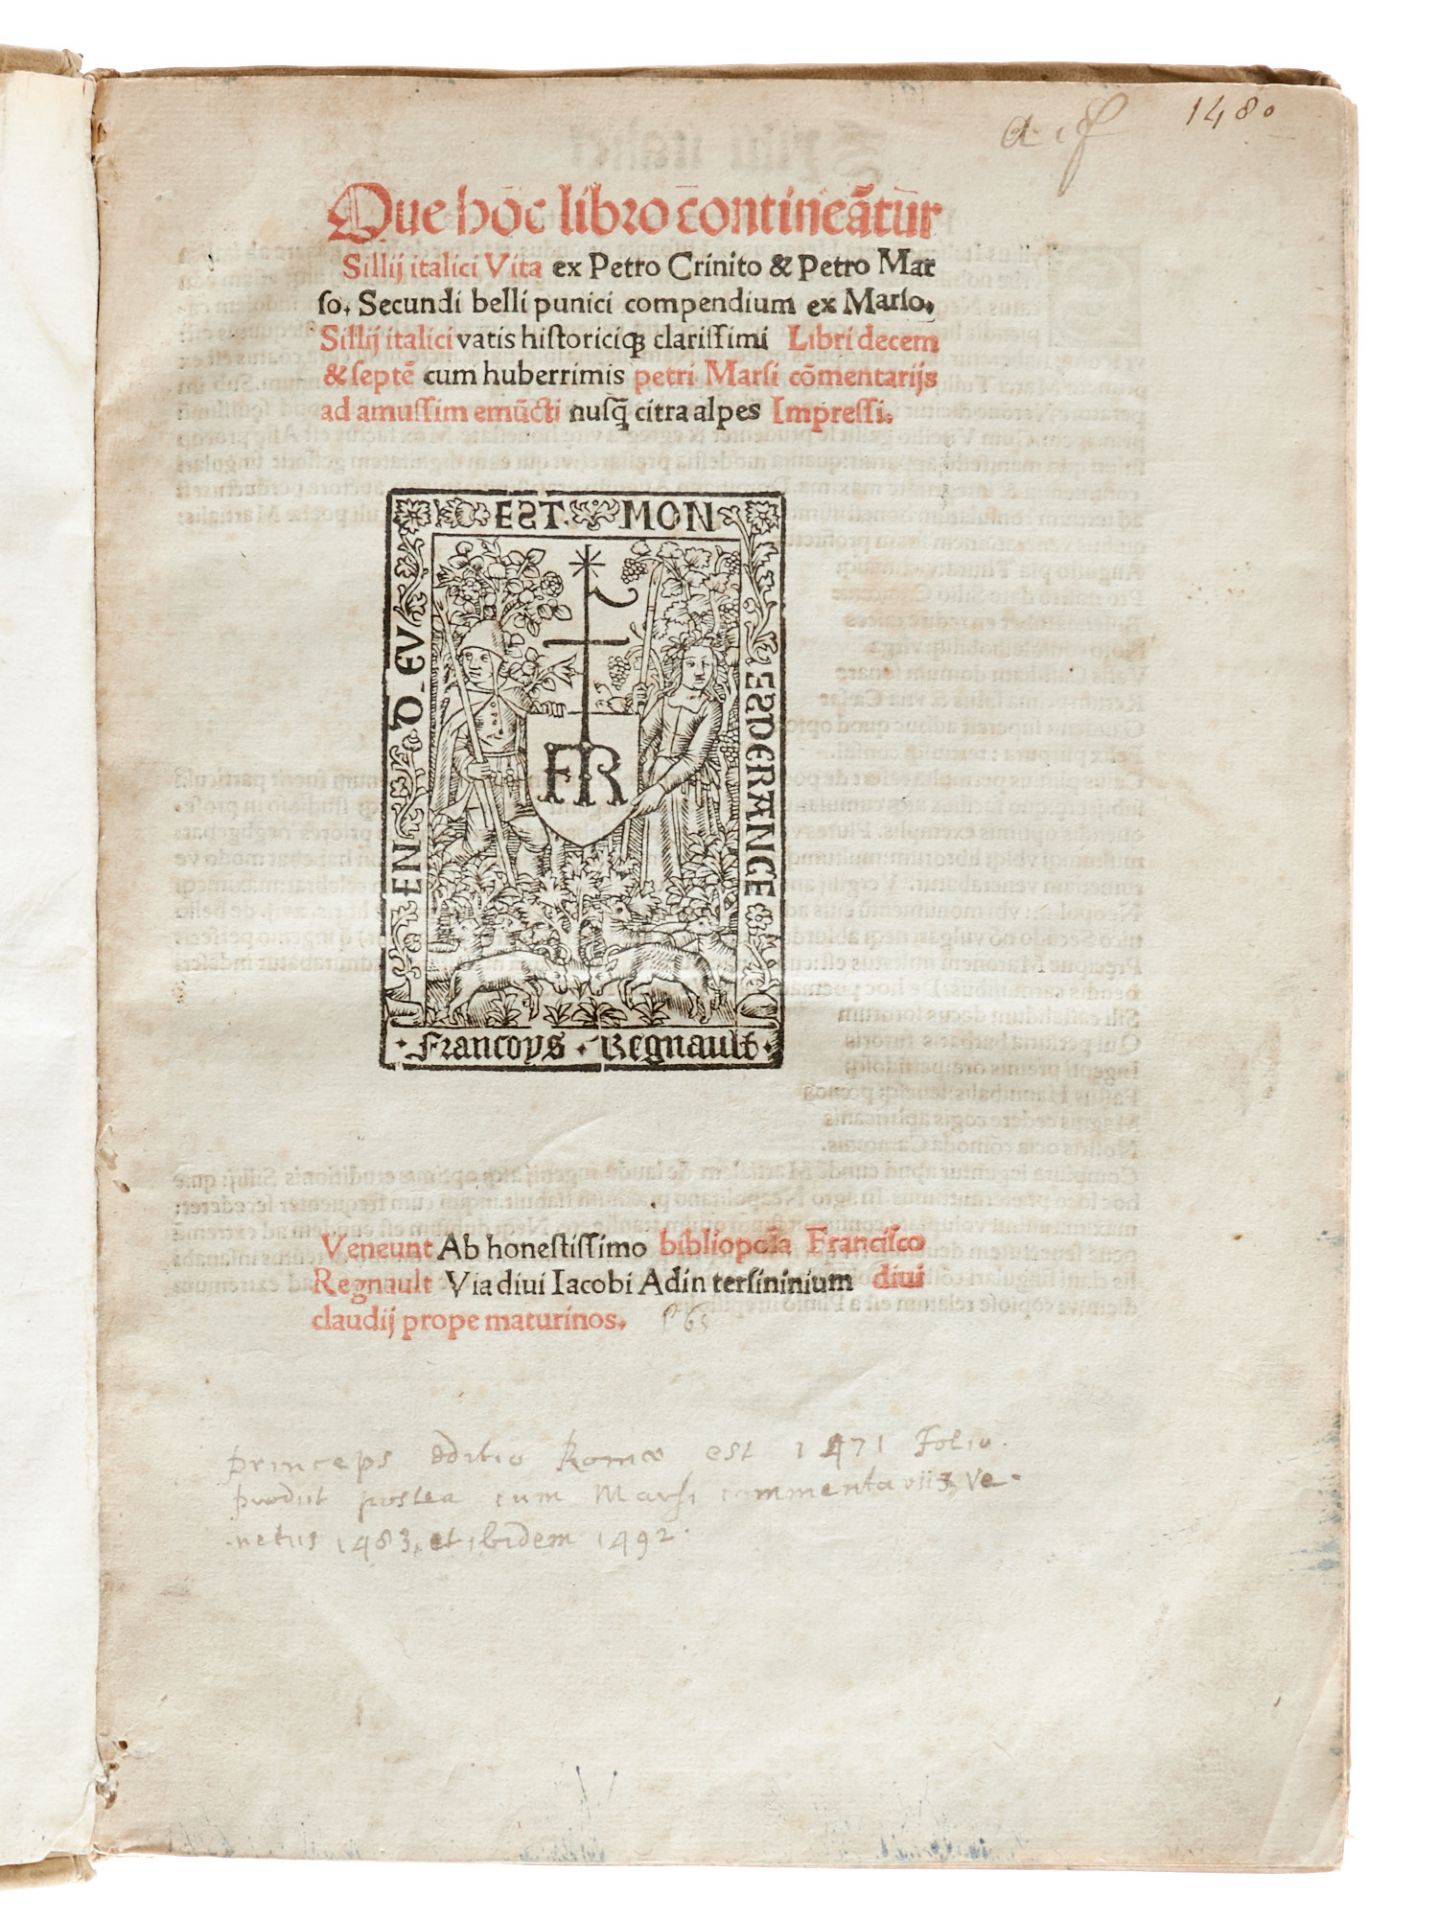 a. i f 1480
Que hōc libro cōntineātur̄
Sillij italici Vita ex Petro Crinito & Petro Mar
so. Secundi belli punici compendium ex Marso.
Sillij italici vatis historiciqꝫ clarissimi Libri decem
& septē cum huberrimis petri Marsi cōmentarijs
ad amussim emūcti nusq̄ citra alpes Impressi.
EST MON
EN D EV
ESPERANCE
FR
Francoys Regnault
Veneunt Ab honestissimo bibliopola Francisco
Regnault Via diui Iacobi Ad intersininium diui
claudij prope maturinos.
princeps editio Romae est 1471 Folio.
prodiit postea cum Marsi commentariis, Ve-
netiis 1483, et ibidem 1492.